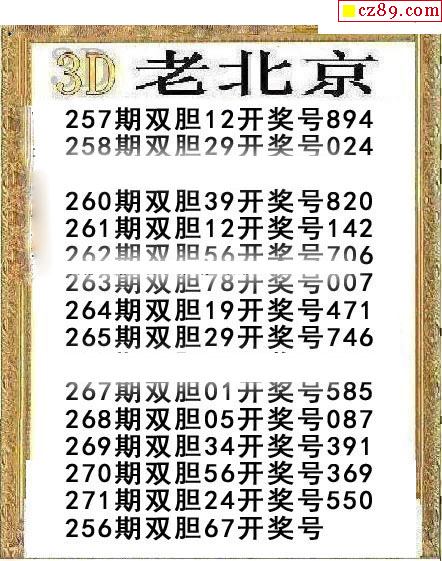 cz89.com
3D 老北京
257期双胆12开奖号894
258期双胆29开奖号024
260期双胆39开奖号820
261期双胆12开奖号142
262期双胆56开奖号706
263期双胆78开奖号007
264期双胆19开奖号471
265期双胆29开奖号746
267期双胆01开奖号585
268期双胆05开奖号087
269期双胆34开奖号391
270期双胆56开奖号369
271期双胆24开奖号550
256期双胆67开奖号